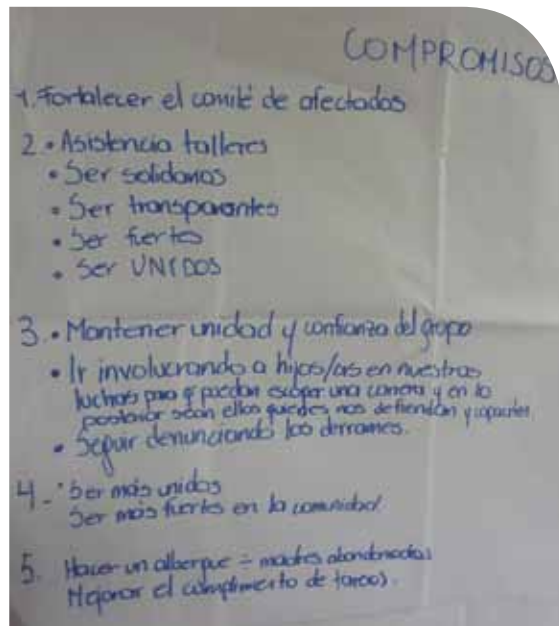 COMPROMISOS
1. Fortalecer el comité de afectados
2. • Asistencia talleres
• Ser solidarios
• Ser transparantes
• Ser fuertes
• Ser UNIDOS
3. • Mantener unidad y confianza del grupo
• Ir involucrando a hijos/as en nuestras
luchas para q puedan escoger una carrera y en lo
posterior sean ellos quiedes nos defiendan y
• Seguir denunciando los derrames.
4 - • Ser más unidos
Ser más fuertes en la comunidad.
5. Hacer un albergue - madres abandonadas
Mejorar el cumplimento de tareas.